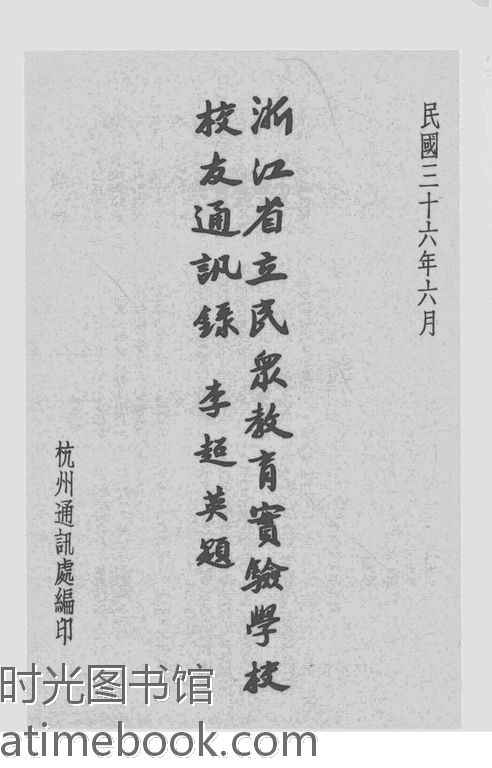 民國三十六年六月
浙江省立民衆教育實驗學校
校友通訊錄 李超英題
杭州通訊處編印
时光图书馆
atimebook.com